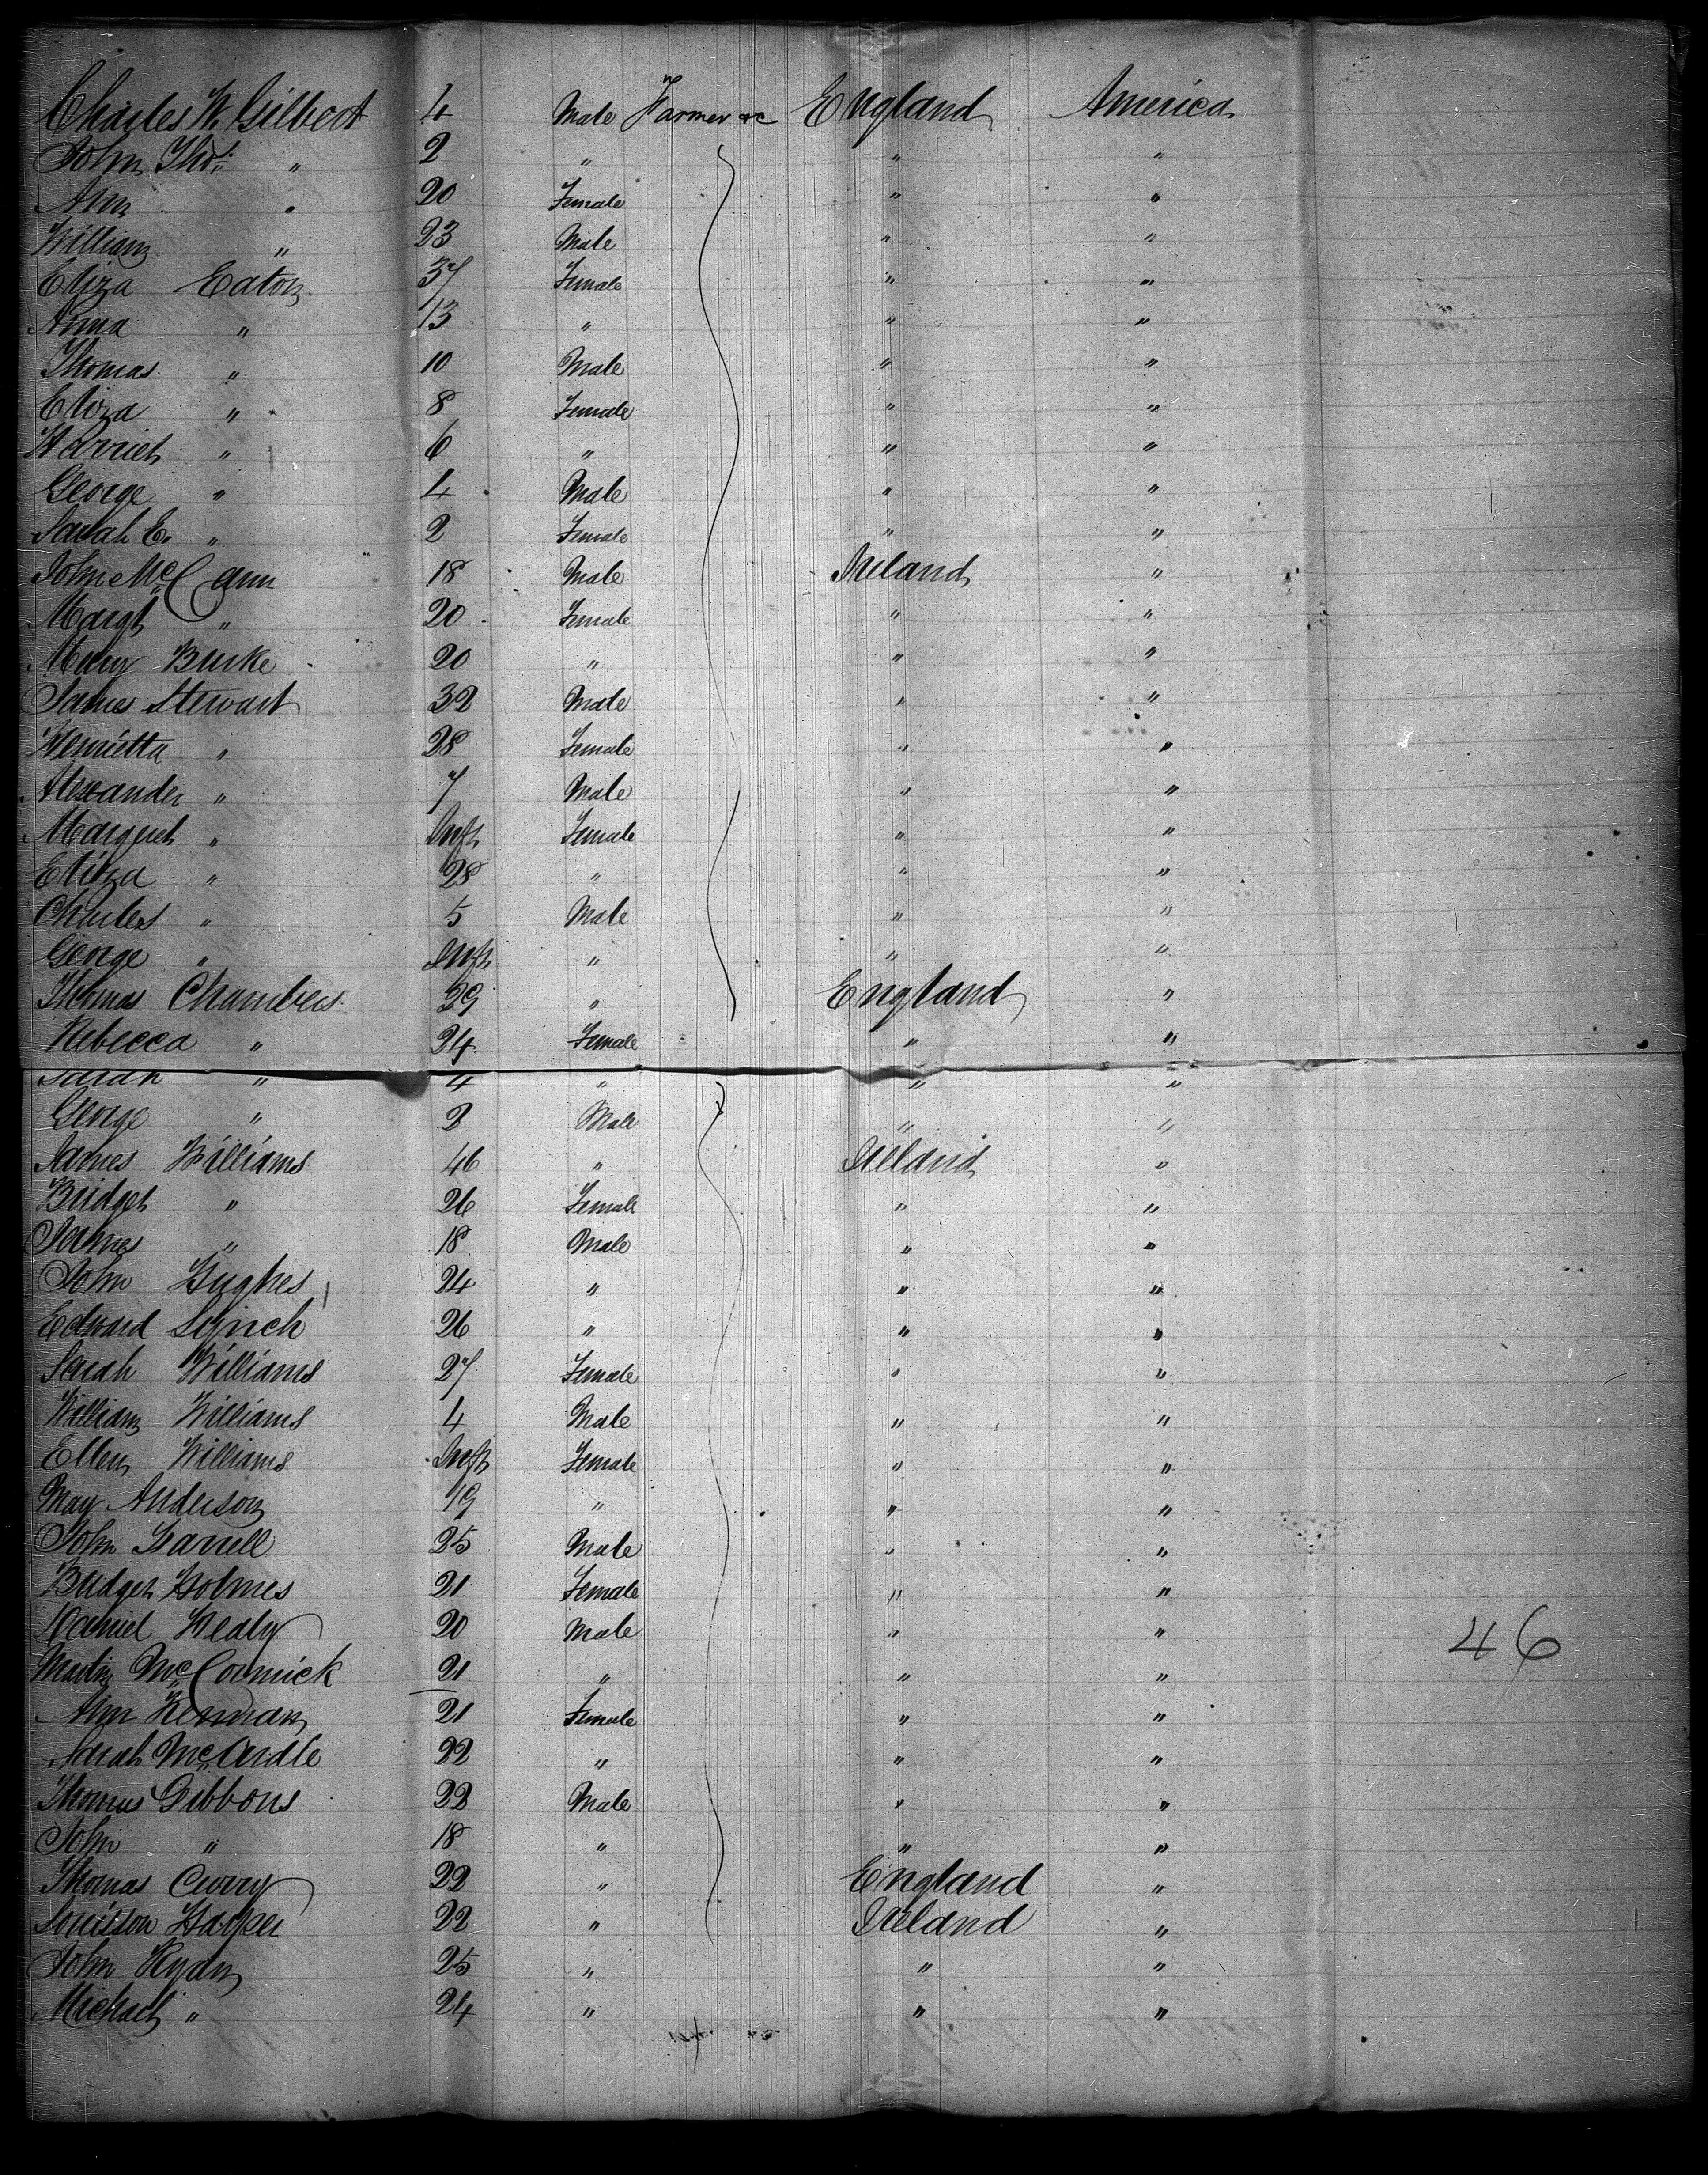 Charles W. Gilbert 4 Male Farmer &c England America
John Thos. " 2 " " "
Ann " 20 Female " "
William " 23 Male " "
Eliza Eaton 37 Female " "
Anna " 13 " " "
Thomas " 10 Male " "
Eliza " 8 Female " "
Harriet " 6 " " "
George " 4 Male " "
Sarah E. " 2 Female " "
John McCann 18 Male Ireland "
Margt " 20 Female " "
Mary Burke 20 " " "
James Stewart 32 Male " "
Henrietta " 28 Female " "
Alexander " 7 Male " "
Margret " Inft Female " "
Eliza " 28 " " "
Charles " 5 Male " "
George " Inft " " "
Thomas Chambers 29 " England "
Rebecca " 24 Female " "
Sarah " 4 " " "
George " 2 Male " "
James Williams 46 " Ireland "
Bridget " 26 Female " "
James " 18 Male " "
John Hughes 24 " " "
Edward Lynch 26 " " "
Sarah Williams 27 Female " "
William Williams 4 Male " "
Ellen Williams Inft Female " "
May Anderson 19 " " "
John Farrell 25 Male " "
Bridget Holmes 21 Female " "
Daniel Healy 20 Male " "
Martin McCormick 21 " " "
46
Ann Kernan 21 Female " "
Sarah McArdle 22 " " "
Thomas Gibbons 22 Male " "
John " 18 " " "
Thomas Curry 22 " England "
Harper 22 " Ireland "
John Ryan 25 " " "
Michael " 24 " " "